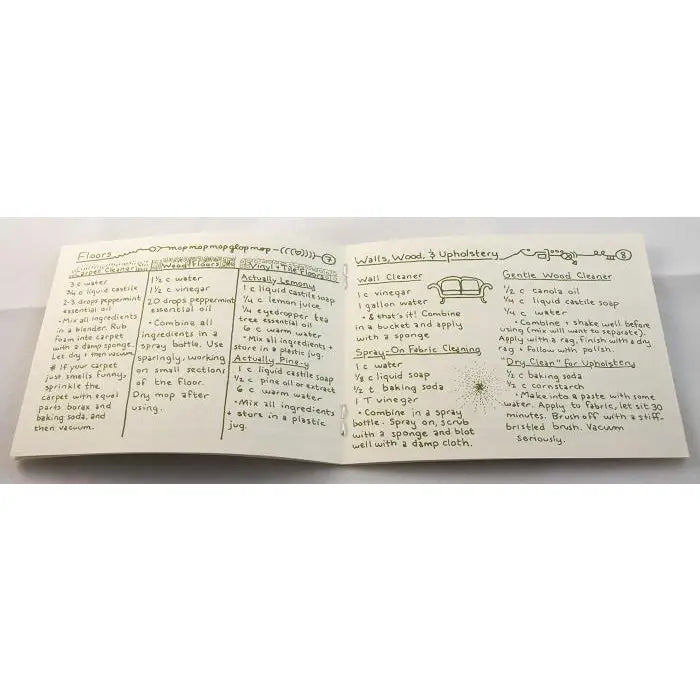 Floors mop mop mop glop mop 7
Carpet Cleaner
3 c water
¾ c liquid castile
2-3 drops peppermint
essential oil
• Mix all ingredients
in a blender. Rub
foam into carpet
with a damp sponge.
Let dry & then vacuum.
* If your carpet
just smells funny,
sprinkle the
carpet with equal
parts borax and
baking soda, and
then vacuum.
Wood Floors
1½ c water
1½ c vinegar
20 drops peppermint
essential oil
• Combine all
ingredients in a
spray bottle. Use
sparingly, working
on small sections
of the floor.
Dry mop after
using.
Vinyl + Tile Floors
Actually Lemony
1 c liquid castile soap
¼ c lemon juice
¼ eyedropper tea
tree essential oil
6 c warm water
• Mix all ingredients +
store in a plastic jug.
Actually Pine-y
1 c liquid castile soap
½ c pine oil or extract
6 c warm water
• Mix all ingredients
+ store in a plastic
jug.
Walls, Wood, & Upholstery 8
Wall Cleaner
1 c vinegar
1 gallon water
• & that's it! Combine
in a bucket and apply
with a sponge
Spray-On Fabric Cleaning
1 c water
⅛ c liquid soap
½ t baking soda
1 T vinegar
• Combine in a spray
bottle. Spray on, scrub
with a sponge and blot
well with a damp cloth.
Gentle Wood Cleaner
½ c canola oil
¼ c liquid castile soap
¼ c water
• Combine + shake well before
using (mix will want to separate).
Apply with a rag, finish with a dry
rag + follow with polish.
"Dry Clean" for Upholstery
½ c baking soda
½ c cornstarch
• Make into a paste with some
water. Apply to fabric, let sit 30
minutes. Brush off with a stiff-
bristled brush. Vacuum
seriously.